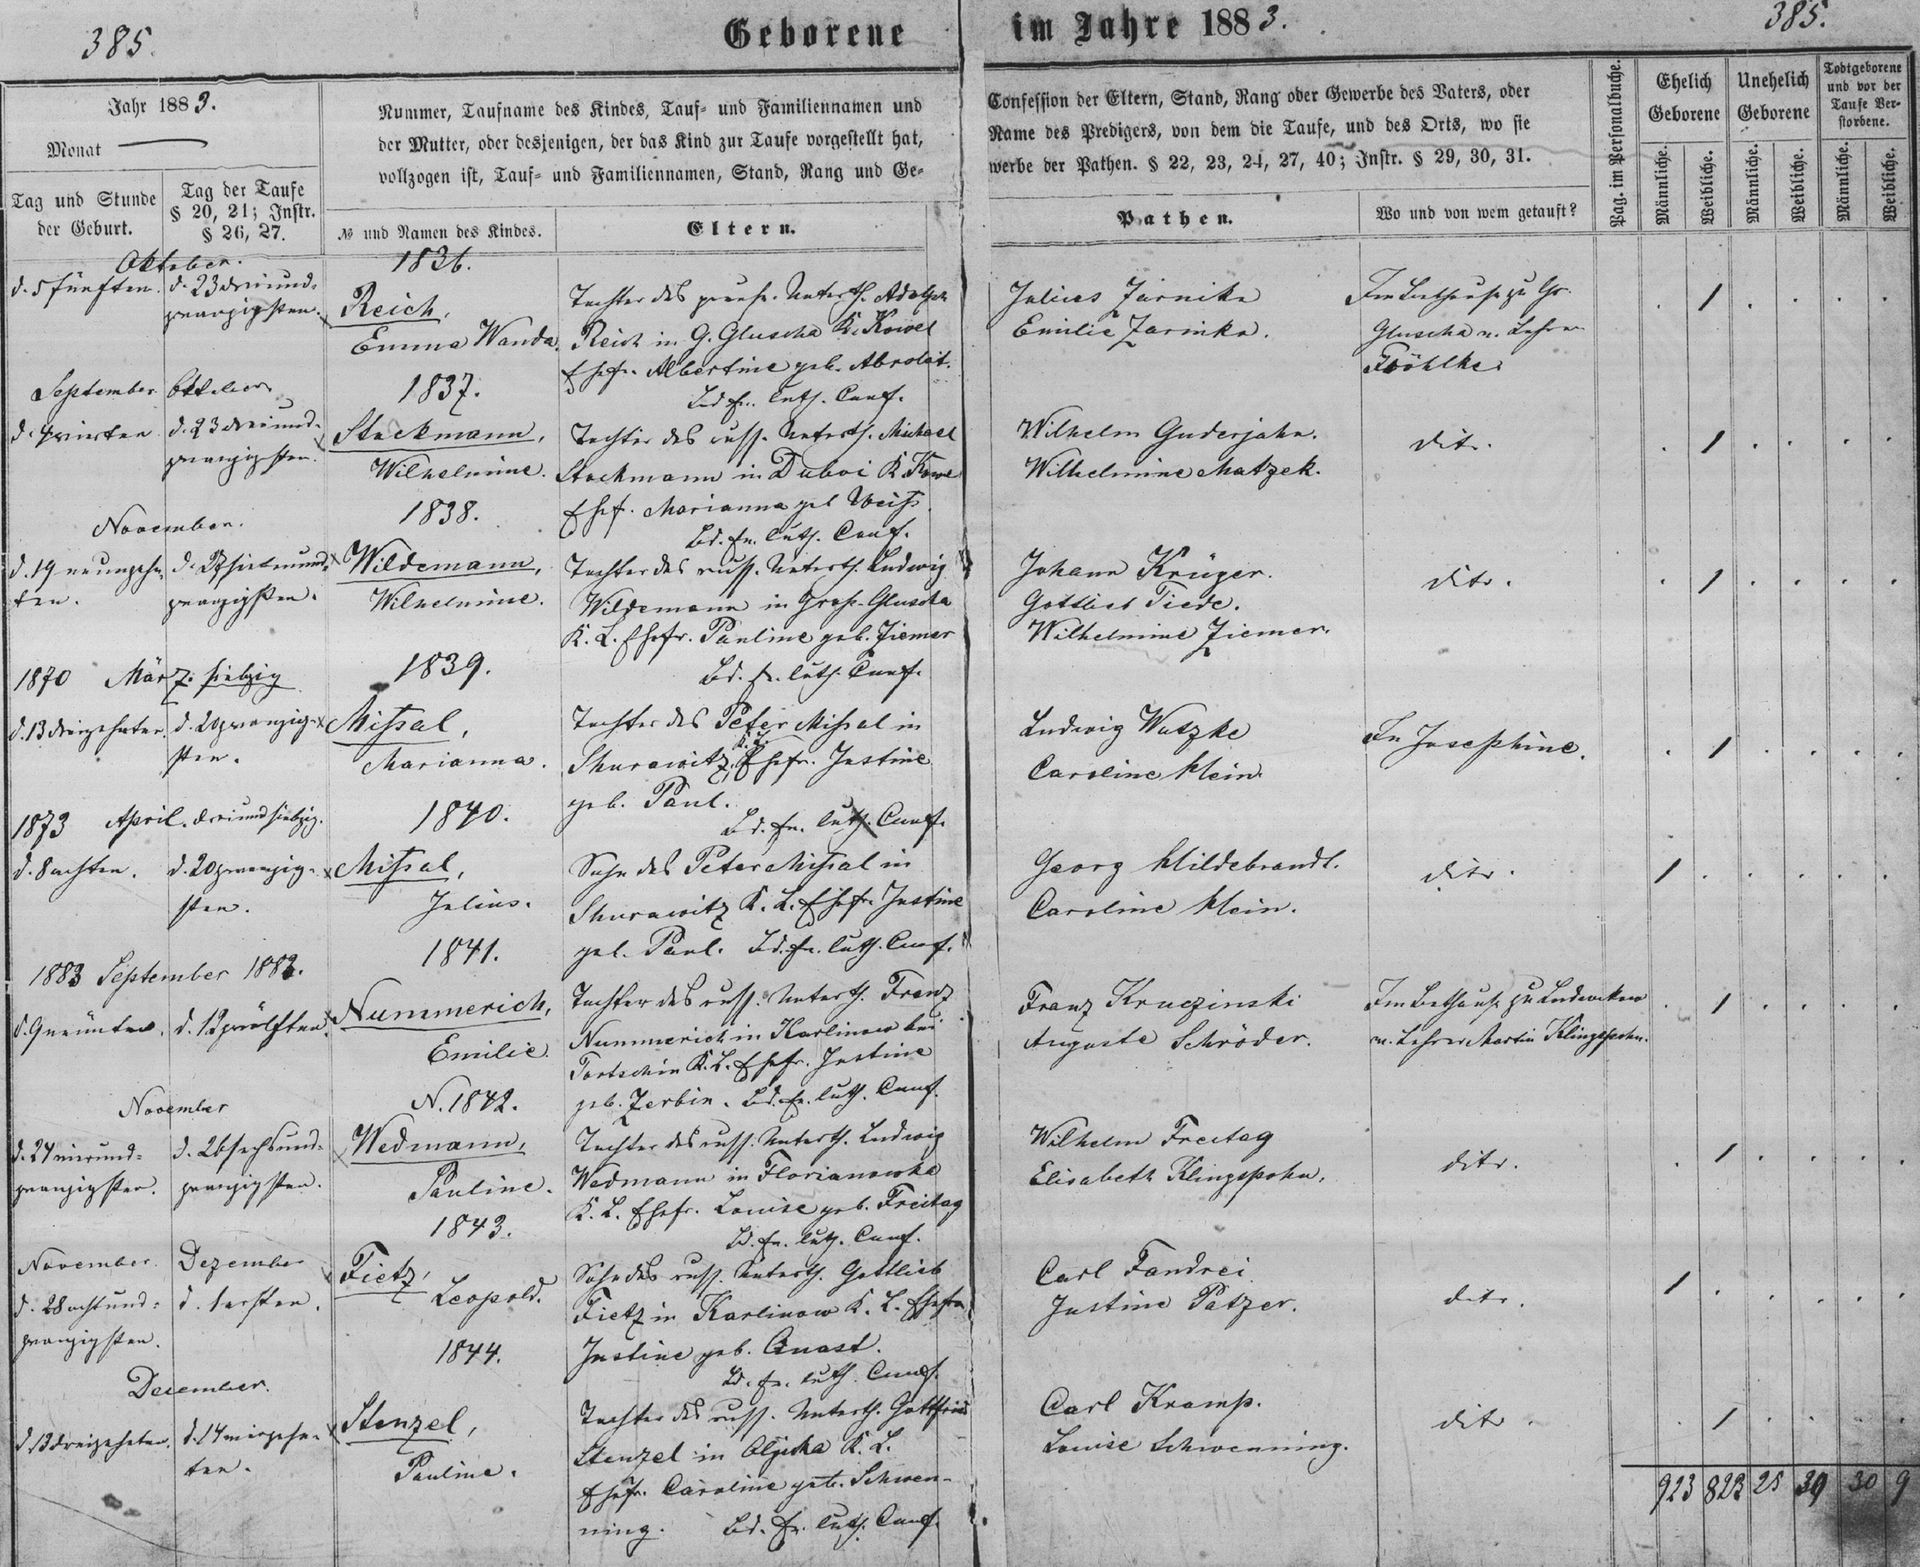 385.
Geborene im Jahre 1883.
385.
Jahr 1883.
Monat
Tag und Stunde der Geburt.
Tag der Taufe § 20, 21; Instr. § 26, 27.
Nummer, Taufname des Kindes, Tauf- und Familiennamen und
der Mutter, oder desjenigen, der das Kind zur Taufe vorgestellt hat,
vollzogen ist, Tauf- und Familiennamen, Stand, Rang und Ge-
№ und Namen des Kindes.
Eltern.
Confession der Eltern, Stand, Rang oder Gewerbe des Vaters, oder
Name des Predigers, von dem die Taufe, und des Orts, wo sie
werbe der Pathen. § 22, 23, 24, 27, 40; Instr. § 29, 30, 31.
Pathen.
Wo und von wem getauft?
Pag. im Personalbuche.
Ehelich Geborene
Unehelich Geborene
Todtgeborene und vor der Taufe Verstorbene.
Männliche.
Weibliche.
Männliche.
Weibliche.
Männliche.
Weibliche.
Oktober.
1836.
d. 5 fünften.
d. 23 dreiund-
zwanzigsten.
Reich,
Emma Wanda.
Tochter des preuss. Unterth. Adolph
Reich in G. Gluscha K. Kowel
Ehefr. Albertine geb. Abrolat.
Bd. Ev. luth. Conf.
Julius Jarnike
Emilie Zarinke.
Im Bethause zu Gr.
Gluscha v. Lehrer
Fröhlke.
September
Oktober
1837.
d. 4 vierten
d. 23 dreiund-
zwanzigsten.
Stockmann,
Wilhelmine.
Tochter des russ. Unterth. Michael
Stockmann in Duboi K. Kowel
Ehef. Marianna geb Weiß.
Bd. Ev. luth. Conf.
Wilhelm Guderjahn.
Wilhelmine Matzek.
dito.
November.
1838.
d. 19 neunzehn
ten.
d. 27 siebenund-
zwanzigsten.
Wildemann,
Wilhelmine.
Tochter des russ. Unterth. Ludwig
Wildemann in Gross-Gluscha
K. L. Ehefr. Pauline geb. Ziemer
Bd. Ev. luth. Conf.
Johann Krüger.
Gottlieb Tiede.
Wilhelmine Ziemer.
dito.
1870 März. siebzig
1839.
d. 13 dreizehnten.
d. 20 zwanzig-
sten.
Missal,
Marianna.
Tochter des Peter Missal in
Shurawitz, K. L. Ehefr. Justine
geb. Paul.
Bd. Ev. luth. Conf.
Ludwig Watzke
Caroline Klein.
In Josephine.
1873 April. dreiundsiebzig.
1840.
d. 8 achten.
d. 20 zwanzig-
sten.
Missal,
Julius.
Sohn des Peter Missal in
Shurawitz K. L. Ehefr. Justine
geb. Paul. Bd. Ev. luth. Conf.
Georg Hildebrandt.
Caroline Klein.
dito.
1883 September 1883.
1841.
d. 9 neunten.
d. 12 zwölften
Nummerich,
Emilie.
Tochter des russ. Unterth. Franz
Nummerich in Karlinow bei
Tortschin K. L. Ehefr. Justine
geb. Zerbin. Bd. Ev. luth. Conf.
Franz Kruczinski
Auguste Schröder.
Im Bethause zu
v. Lehrer Martin Klingspohn.
November
N. 1842.
d. 24 vierund-
zwanzigsten.
d. 26 sechsund-
zwanzigsten.
Wedmann,
Pauline.
Tochter des russ. Unterth. Ludwig
Wedmann in Florianowka
K. L. Ehefr. Louise geb. Freitag
Bd. Ev. luth. Conf.
Wilhelm Freitag
Elisabeth Klingspohn.
dito.
November.
Dezember
1843.
d. 28 achtund-
zwanzigsten.
d. 1 ersten.
Fietz,
Leopold.
Sohn des russ. Unterth. Gottlieb
Fietz in Karlinow K. L. Ehefr.
Justine geb. Quast.
Bd. Ev. luth. Conf.
Carl Fandrei
Justine Patzer.
dito.
December.
1844.
d. 13 dreizehnten.
d. 14 vierzehn-
ten.
Stenzel,
Pauline.
Tochter des russ. Unterth. Gottfried
Stenzel in Olycka K. L.
Ehefr. Caroline geb. Schwen-
ning. Bd. Ev. luth. Conf.
Carl Kramp.
Louise Schwenning.
dito.
923 823 25 39 30 9